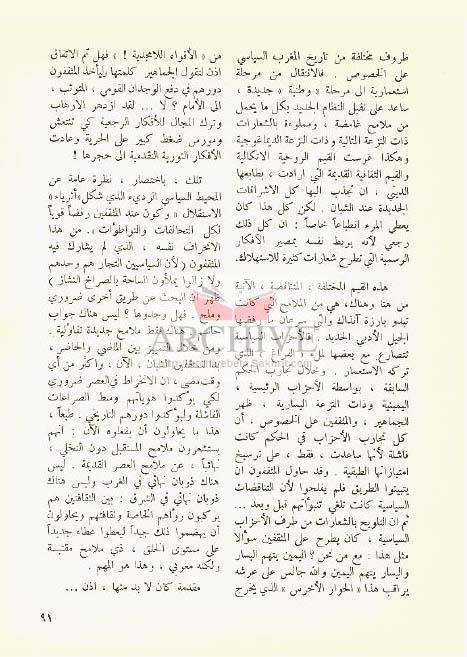 ظروف مختلفة من تاريخ المغرب السياسي
على الخصوص . فالانتقال من مرحلة
استعمارية الى مرحلة « وطنية » جديدة ،
ساعد على تقبل النظام الجديد بكل ما يحمل
من ملامح غامضة ، ومملوءة بالشعارات
ذات النزعة المثالية وذات النزعة الديماغوجية
وهكذا غرست القيم الروحية الاتكالية
والقيم الثقافية القديمة التي ارادت ، بطابعها
الديني ، ان تجذب اليها كل الاشراقات
الجديدة عند الشبان . لكن كل هذا كان
يعطي المرء انطباعاً خاصاً : ان كل ذلك
رجعي لأنه يربط نفسه بمصير الأفكار
الرسمية التي تطرح شعارات كثيرة للاستهلاك.
هذه القيم المختلفة ، المتناقضة ، الآتية
من هنا وهناك، هي من الملامح التي كانت
تبدو بارزة آنذاك والتي سرعان ما رفضها
الجيل الأدبي الجديد . فالأحزاب السياسية
تتصارع مع بعضها لملء الفراغ الذي
تركه الاستعمار . وخلال تجارب الحكم
السابقة ، بواسطة الأحزاب الرئيسية ،
اليمينية وذات النزعة اليسارية ، ظهر
للجماهير ، والمثقفين على الخصوص ، أن
كل تجارب الأحزاب في الحكم كانت
فاشلة لأنها ساعدت ، فقط ، على ترسيخ
امتيازاتها الطبقية . وقد حاول المثقفون ان
يتبينوا الطريق فلم يفلحوا لأن التناقضات
السياسية كانت تلغي تنبوآتهم قبل وبعد ...
ثم ان التلويح بالشعارات من طرف الأحزاب
السياسية ، كان يطرح على المثقفين سؤالا
مثل هذا : مع من نحن ؟ اليمين يتهم اليسار
واليسار يتهم اليمين والله جالس على عرشه
يراقب هذا « الحوار الأخرس » الذي يخرج
من « الأفواه اللامجدية ! » فهل تم الاتفاق
اذن لتقول الجماهير كلمتها وليأخذ المثقفون
دورهم في دفع الوجدان القومي ، المتوثب ،
الى الأمام ؟ لا ... لقد ازدهر الارهاب
وترك المجال للأفكار الرجعية كي تنتعش
ومورس ضغط كبير على الحرية وعادت
الأفكار الثورية التقدمية الى حجرها !
تلك ، باختصار ، نظرة عامة عن
المحيط السياسي الرديء الذي شكل «أثرياء»
الاستقلال « وكون عند المثقفين رفضاً قوياً
لكل التحالفات والتواطؤات). من هذا
الانحراف نفسه ، الذي لم يشارك فيه
المثقفون ( لأن السياسيين التجار هم وحدهم
ولا زالوا يملأون الساحة بالصراخ النشاز )
ظهر ان البحث عن طريق أخرى ضروري
وملح . فهل وجدوها ؟ ليس هناك جواب
حاسم . هناك فقط ملامح جديدة تفاؤلية .
ومن خلال التمييز بين الماضي والحاضر ،
بدا للمثقفين الشبان ، الآن ، واكثر من أي
وقت مضى ، ان الانخراط في العصر ضروري
لكي يؤكدوا هوياتهم وسط الصراعات
الفاشلة وليؤكدوا دورهم التاريخي . طبعاً ،
هذا ما يحاولون أن يفعلوه الآن : انهم
يستشعرون ملامح المستقبل دون التخلي ،
نهائياً ، عن ملامح العصر القديمة . ليس
هناك ذوبان نهائي في الغرب وليس هناك
ذوبان نهائي في الشرق : بين الثقافتين هم
يركبون رؤاهم الخاصة وثقافتهم ويحاولون
أن يهضموا ذلك جيداً ليعطوا عطاء جديداً
على مستوى الخلق ، ذي ملامح مقتبسة
ولكنه مغربي ، وهذا هو المهم .
مقدمة كان لا بد منها ، اذن ...
ARCHIVE
٩١